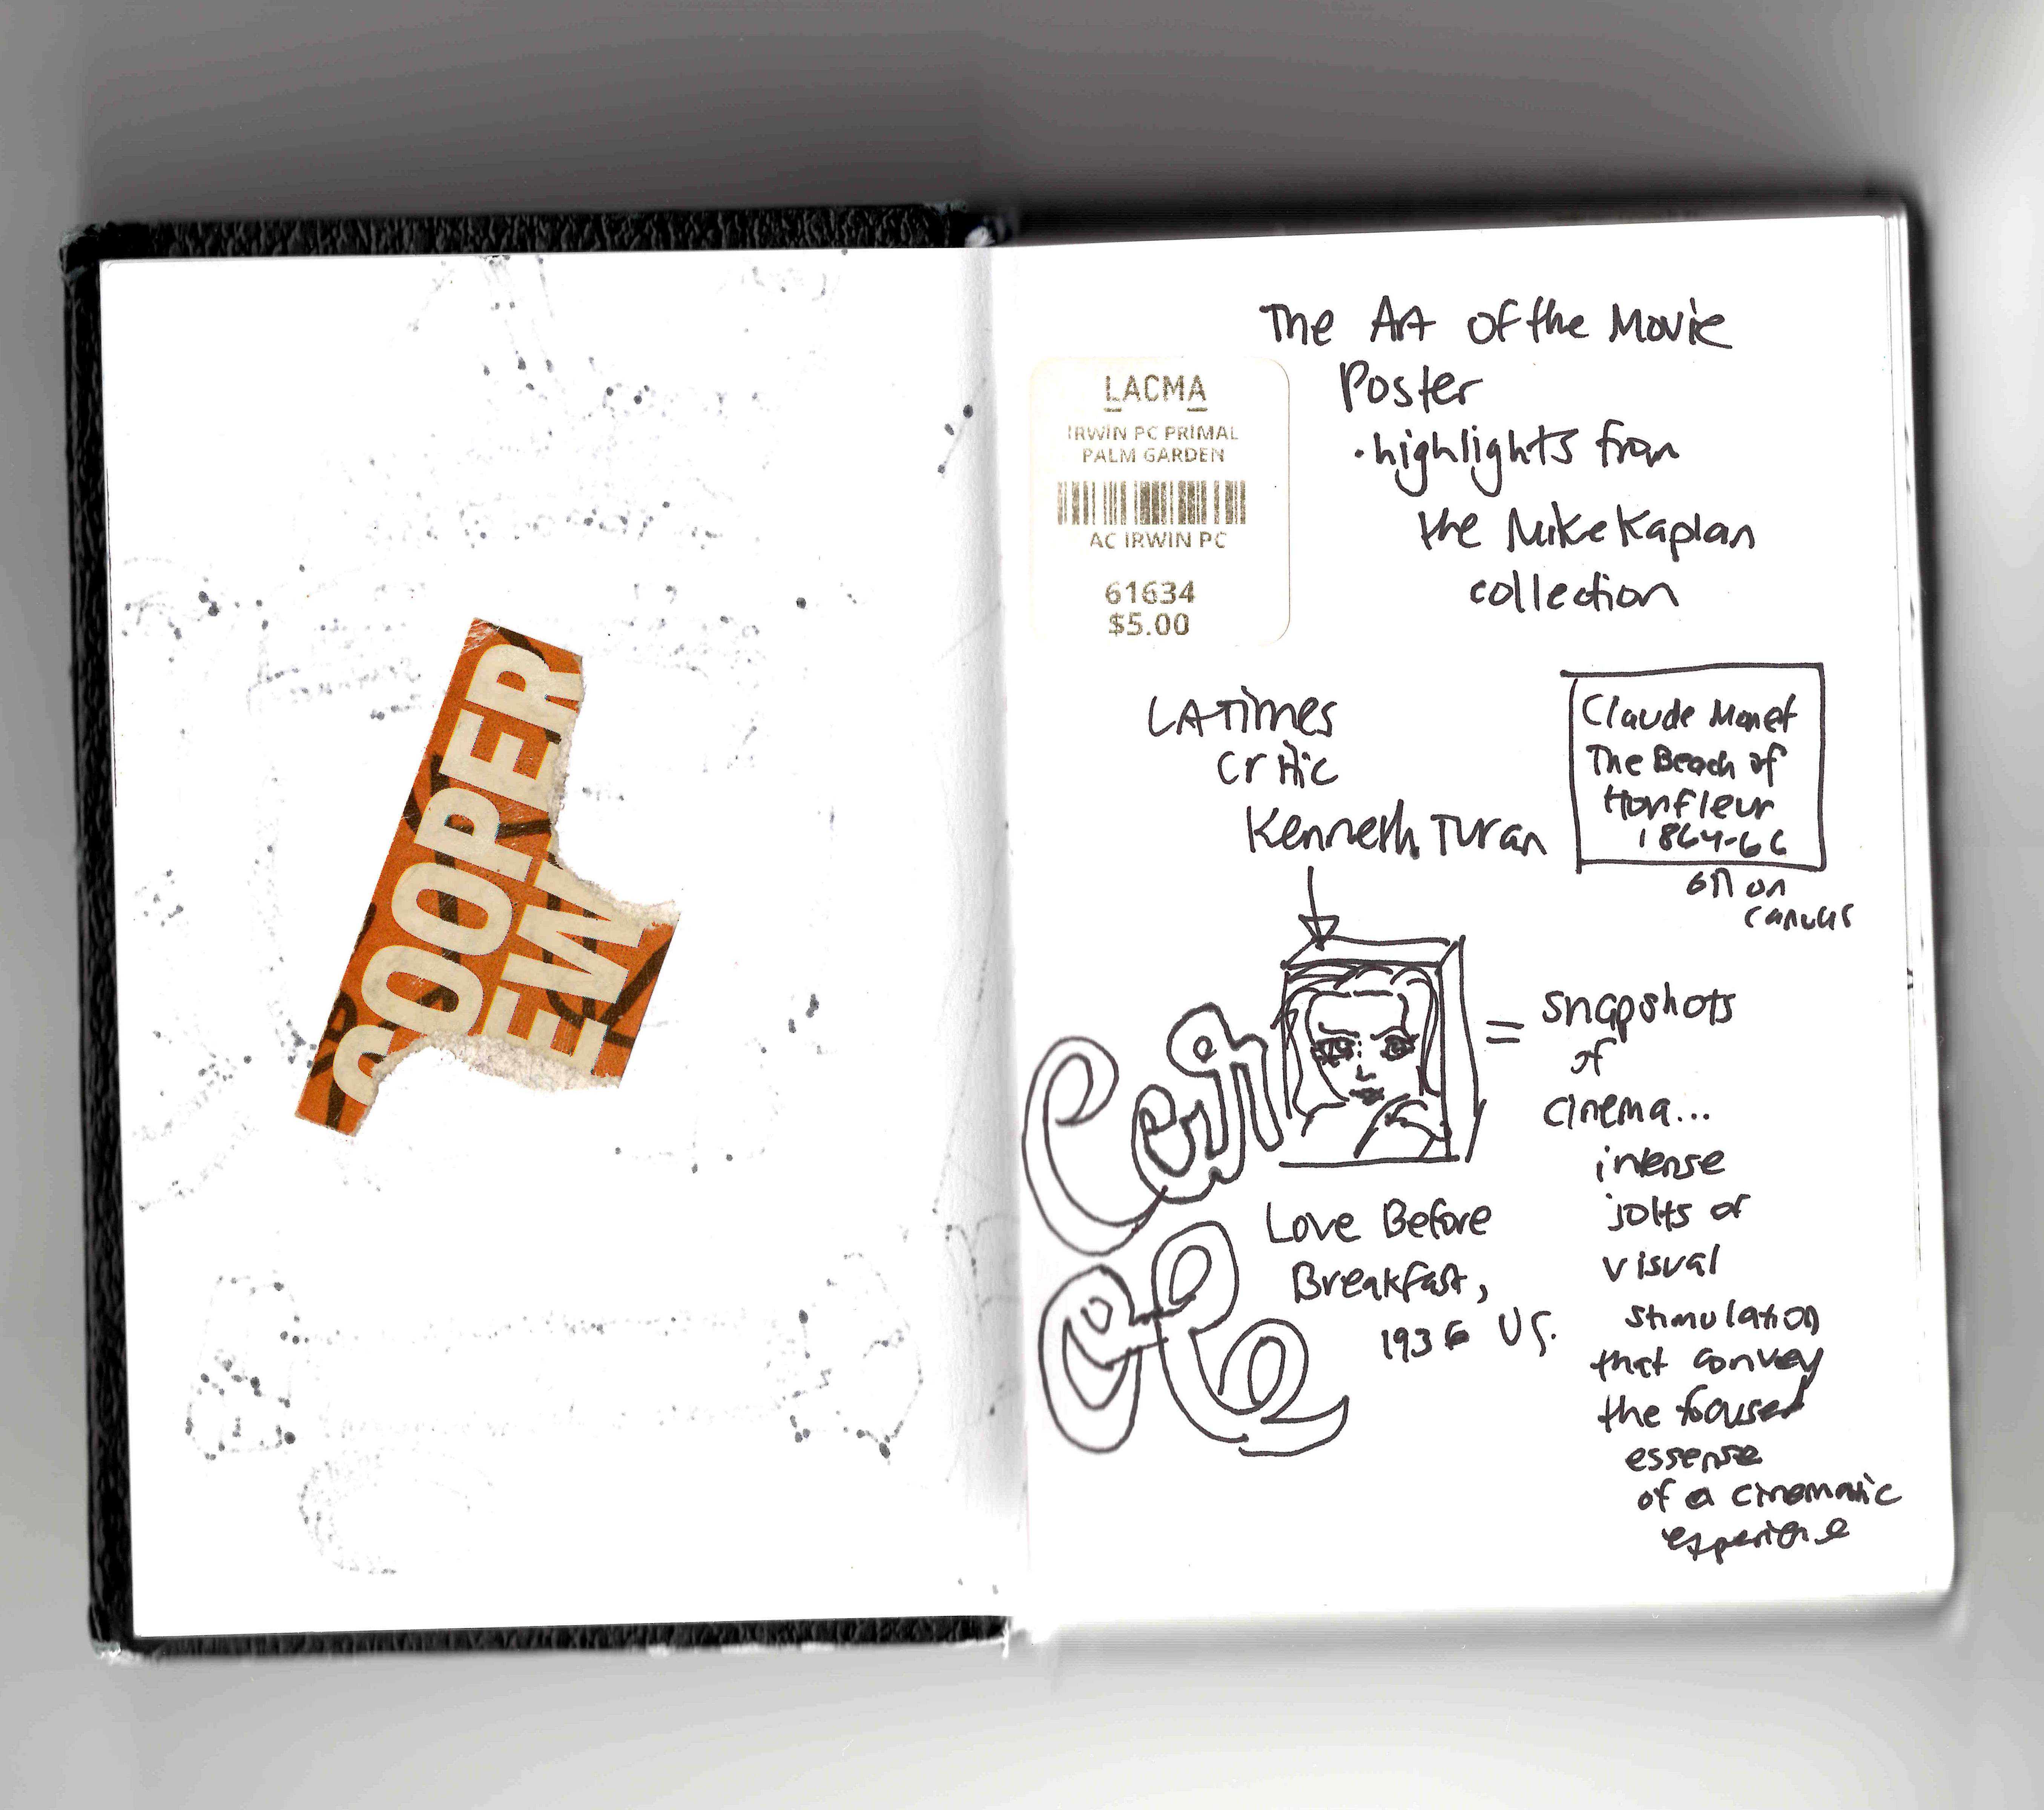 COOPER
EW
The Art of the Movie
Poster
• highlights from
the Mike Kaplan
collection
LACMA
IRWIN PC PRIMAL
PALM GARDEN
AC IRWIN PC
61634
$5.00
LA Times
Critic
Kenneth Turan
Claude Monet
The Beach of
Honfleur
1864-66
oil on
canvas
= snapshots
of
cinema...
intense
jolts of
visual
stimulation
that convey
the focused
essense
of a cinematic
experience
Love Before
Breakfast,
1936 US.